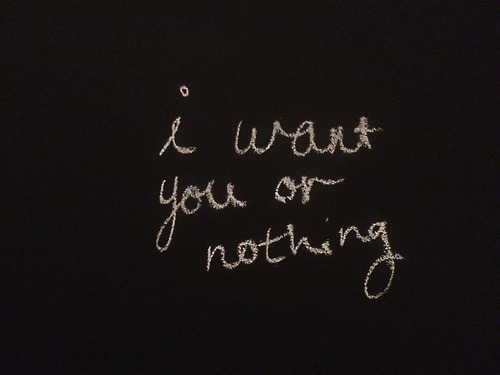 i want
you or
nothing